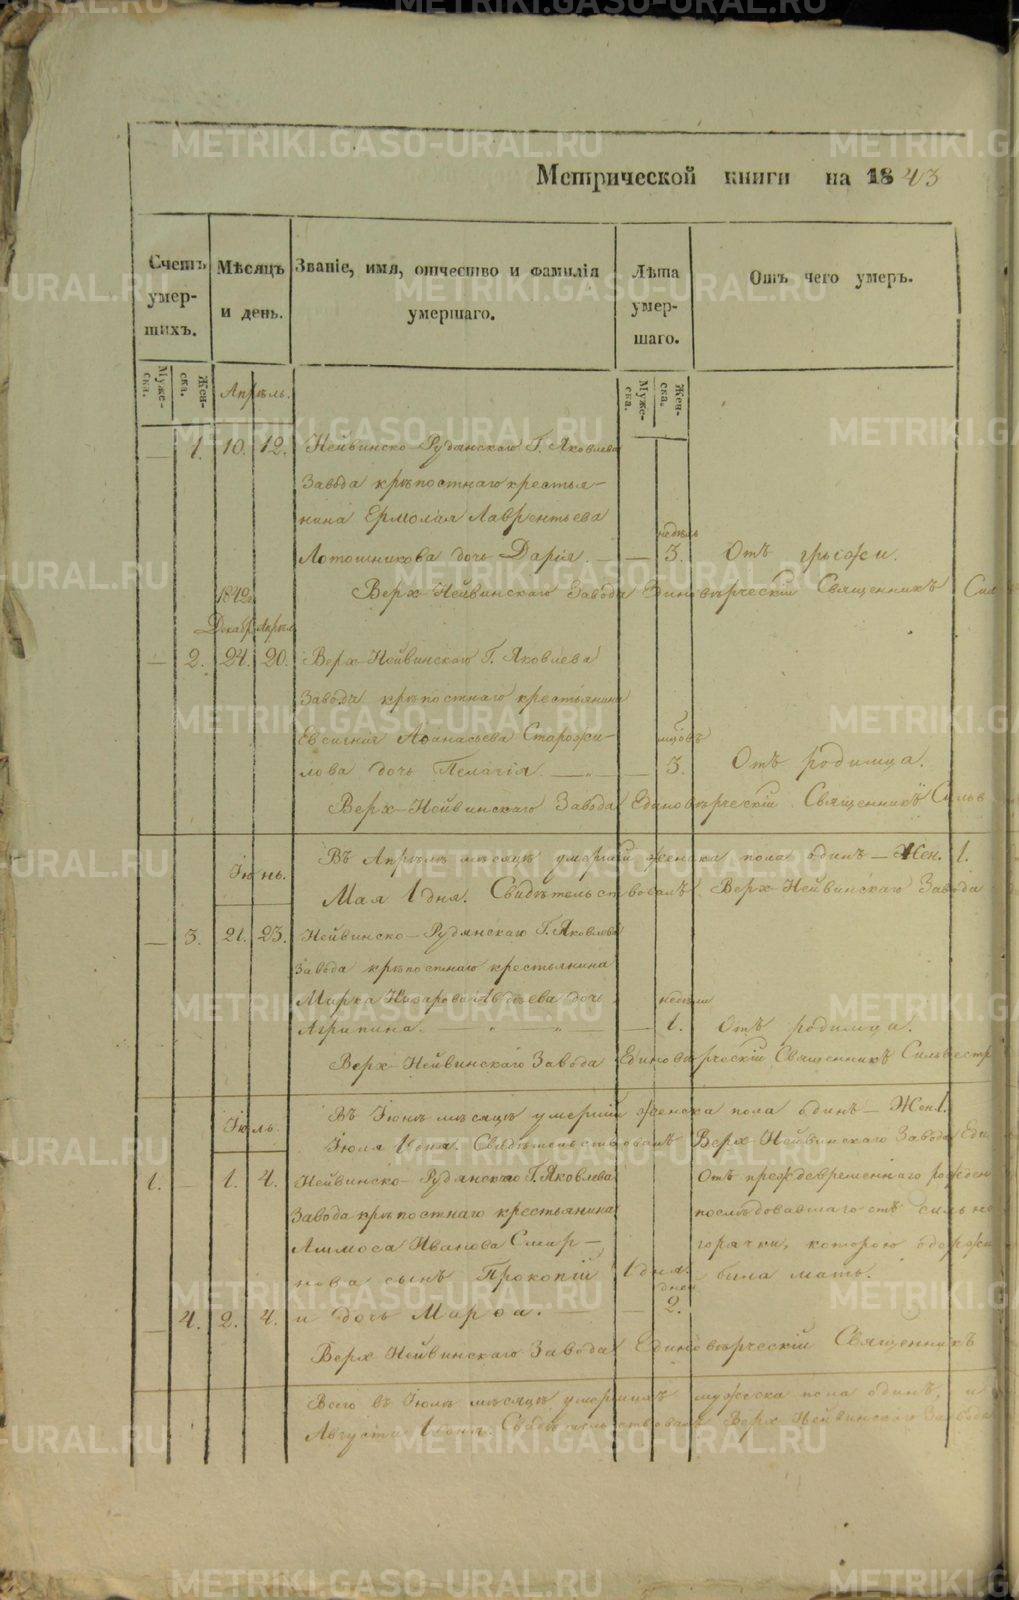 Метрической книги на 1843
Счетъ умер- шихъ.
Мѣсяцъ и день.
Званіе, имя, отчество и фамилія умершаго.
Лѣта умер- шаго.
Отъ чего умеръ.
Муже- ска.
Жен- ска.
Муже- ска.
Жен- ска.
Апрѣль.
— 1. 10. 12. Нейвинско-Рудянскаго Г. Яковлева
Завода крѣпостнаго крестья-
нина Ермолая Лаврентьева
недѣль
Лотошникова дочь Дарія. — — 3. Отъ грыжи.
Верх-Нейвинскаго Завода Единовѣрческій Священникъ Сил
1842
Декабр. Апрѣл.
— 2. 24. 20. Верх-Нейвинскаго Г. Яковлева
Завода крѣпостнаго крестьянина
Евсигнія Аѳанасьева Старожи-
лова дочь Пелагія — — 3. Отъ родимца.
Верх-Нейвинскаго Завода Единовѣрческій Священникъ Сильв
Въ Апрѣлѣ мѣсяцѣ умершій женска пола одинъ — Жен. 1.
Іюнь.
Мая 1 дня. Свидѣтельствовалъ Верх-Нейвинскаго Завода
— 3. 21. 23. Нейвинско-Рудянскаго Г. Яковлева
Завода крѣпостнаго крестьянина
Марка Назарова Авдѣева дочь
недѣли
Агрипина. — — 1. Отъ родимца.
Верх-Нейвинскаго Завода Единовѣрческій Священникъ Сильвестр
Въ Іюнѣ мѣсяцѣ умершій женска пола одинъ — Жен. 1.
Іюль.
Іюля 1 дня. Свидѣтельствовалъ Верх-Нейвинскаго Завода Еди
1. — 1. 4. Нейвинско-Рудянскаго Г. Яковлева Отъ преждевременнаго рожден
Завода крѣпостнаго крестьянина послѣдовавшаго отъ сильно
Аммоса Иванова Смир- горячки, которою одержи
нова сынъ Прокопій 1 дня. была мать.
дней
— 4. 2. 4. и дочь Марѳа. — 2.
Верх Нейвинскаго Завода Единовѣрческій Священникъ
Всего въ Іюлѣ мѣсяцѣ умершихъ мужеска пола одинъ, и
Августа 1 дня. Свидѣтельствовалъ Верх Нейвинскаго Завода
METRIKI.GASO-URAL.RU